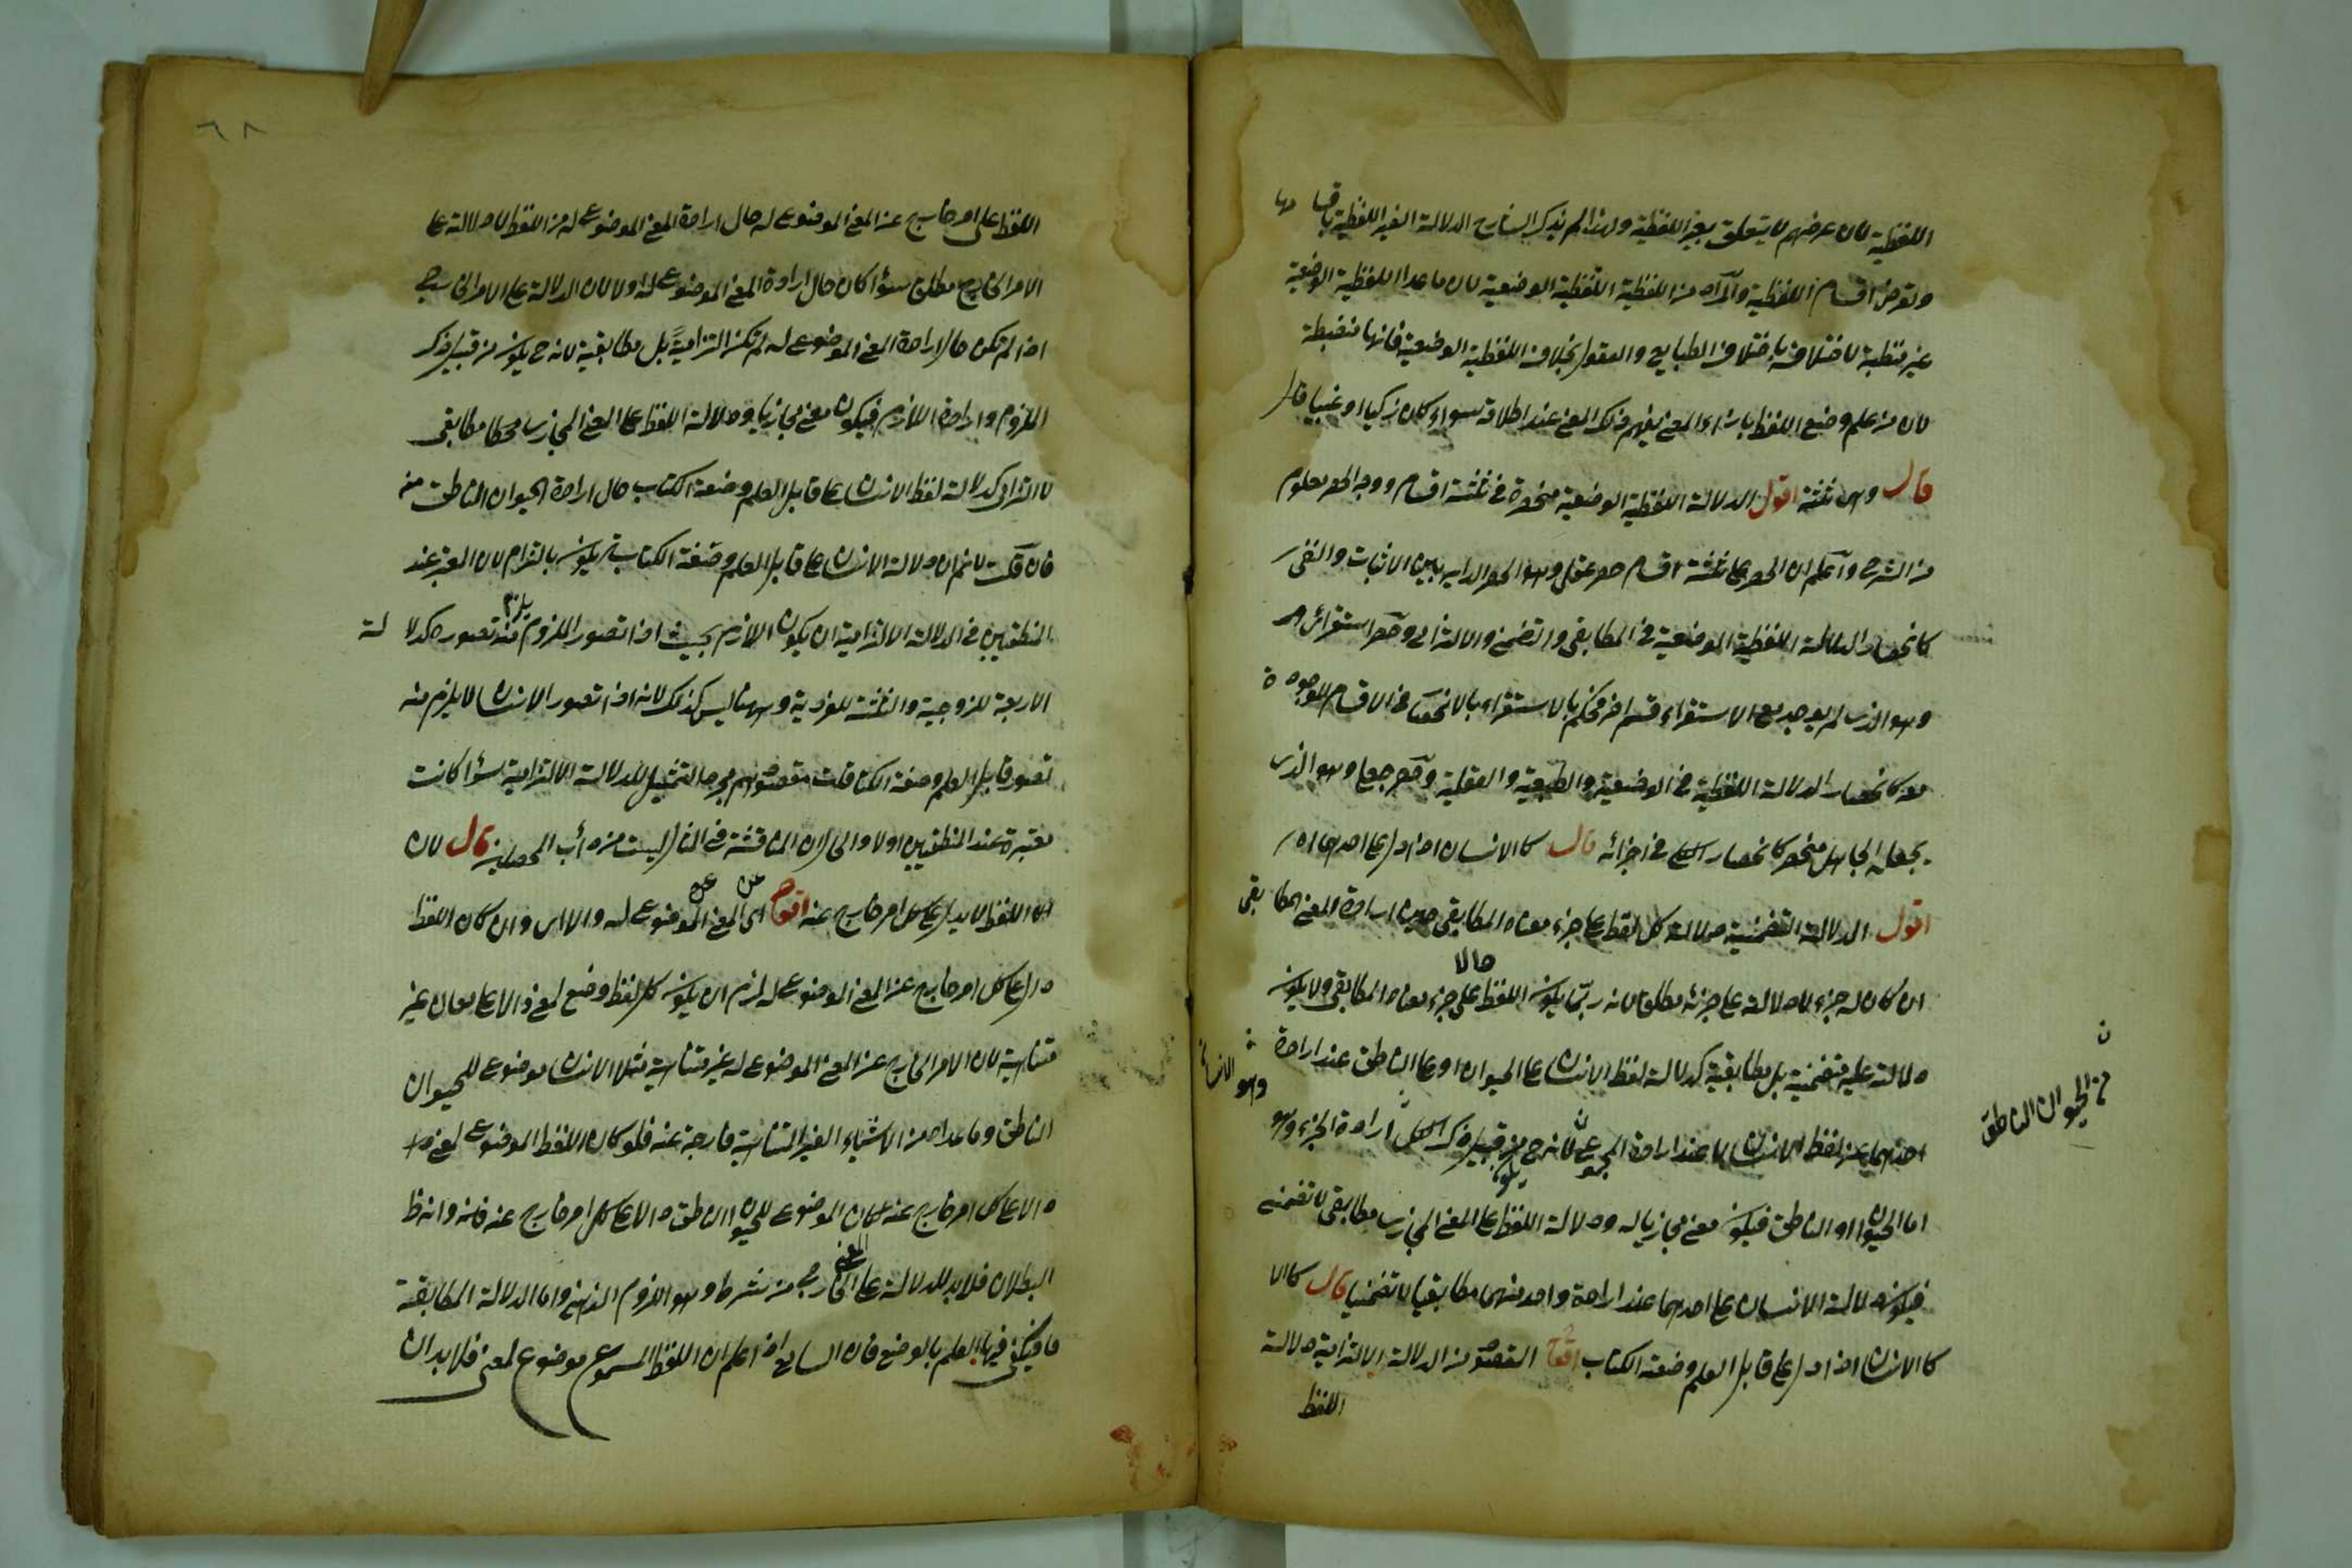 اللفظية لان غرضهم لا يتعلق بغير اللفظية ولهذا لم يذكر الشارح الدلالة الغير اللفظية باقسامها
وتعرض اقسام اللفظية والمراد من اللفظية اللفظية الوضعية لان ماعدا اللفظية الوضعية
غير منضبطة لاختلافه باختلاف الطبايع والعقول بخلاف اللفظية الوضعية فانها منضبطة
لان من علم وضع اللفظ بازاء المعنى يفهم ذلك المعنى عند اطلاقه سواء كان زكيا او غبيا
قال وهى ثلثة اقول الدلالة اللفظية الوضعية منحصرة فى ثلثة اقسام ووجه الحصر معلوم
من الشرح واعلم ان الحصر على ثلثة اقسام حصر عقلى وهو الحصر الداير بين الاثبات والنفى
كانحصار الدلالة اللفظية الوضعية فى المطابقى والتضمنى والالتزامى وحصر استقرائى
وهو الذى لم يوجد مع الاستقراء قسم اخر فحكم بالاستقراء بالانحصار فى الاقسام الموجودة
كانحصار الدلالة اللفظية فى الوضعية والطبيعية والعقلية وحصر جعلى وهو الذى
يجعله الجاعل منحصرا كانحصار الكل فى اجزائه قال كالانسان اذا دل على احدهما اه
اقول الدلالة التضمنية دلالة كل لفظ على جزء معناه المطابقى حين ارادة المعنى المطابقى
ان كان له جزء لا دلالته على جزئه مطلقا لانه ربما يكون اللفظ دالا على جزء معناه المطابقى ولا يكون
دلالته عليه تضمنية بل مطابقية كدلالة لفظ الانسان على الحيوان او على الناطق عند ارادة
احدهما من لفظ الانسان لا عند ارادة المجموع لانه ح يكون من قبيل ذكر الكل وارادة الجزء وهو
اما الحيوان او الناطق فيكون معنى مجازيا له ودلالة اللفظ على المعنى المجازى مطابقى لا تضمنى
فيكون دلالة الانسان على احدهما عند ارادة واحد منهما مطابقيا لا تضمنيا قال كالا
كالانسان اذا دل على قابل العلم وصنعة الكتاب اقول المقصود من الدلالة الالتزامية دلالة
اللفظ
وهو الانسان
الحيوان الناطق
٦٨
اللفظ على امر خارج عن المعنى الموضوع له حال ارادة المعنى الموضوع له من اللفظ لا دلالته على
الامر الخارج مطلقا سواء كان حال ارادة المعنى الموضوع له او لا لان الدلالة على الامر الخارجى
اذا لم تكن حال ارادة المعنى الموضوع له لم تكن التزامية بل مطابقية لانه ح يكون من قبيل ذكر
الملزوم وارادة اللازم فيكون معنى مجازيا ودلالة اللفظ على المعنى المجازى مطابقى
لا التزامى كدلالة لفظ الانسان على قابل العلم وصنعة الكتاب حال ارادة الحيوان الناطق منه
فان قلت لا نم ان دلالة الانسان على قابل العلم وصنعة الكتابة يكون بالتزام لان المعتبر عند
المنطقيين فى الدلالة الالتزامية ان يكون اللازم بحيث اذا تصور الملزوم يلزم منه تصوره كدلالة
الاربعة للزوجية والثلثة للفردية وههنا ليس كذلك لانه اذا تصور الانسان لا يلزم منه
تصور قابل العلم وصنعة الكتابة قلت مقصودهم مجرد التمثيل للدلالة الالتزامية سواء كانت
معتبرة عند المنطقيين او لا والحال ان المناقشة فى المثال ليست من دأب المحصلين قال لان
اللفظ لا يدل على كل امر خارج عنه اقول اى عن المعنى الموضوع له والا اى وان كان اللفظ
دالا على كل امر خارج عن المعنى الموضوع له لزم ان يكون كل لفظ وضع لمعنى دالا على معان غير
متناهية لان الامر الخارج عن المعنى الموضوع له غير متناهية مثلا الانسان موضوع للحيوان
الناطق وماعداه من الاشياء الغير المتناهية خارجة عنه فلو كان اللفظ الموضوع لمعنى
دالا على كل امر خارج عنه لكان الموضوع للحيوان الناطق دالا على كل امر خارج عنه فانه وانه ظ
البطلان فلابد للدلالة على المعنى الخارجى من شرط وهو اللزوم الذهنى واما الدلالة المطابقة
فيكفى فيها العلم بالوضع فان السامع اذا علم ان اللفظ المسموع موضوع لمعنى فلابد ان